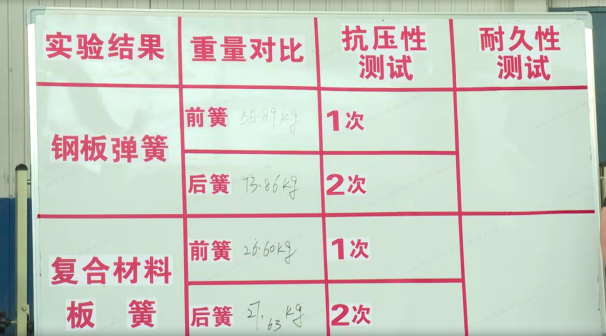 实验结果
重量对比
抗压性
测试
耐久性
测试
钢板弹簧
前簧 55.89kg
1次
后簧 73.86kg
2次
复合材料
板 簧
前簧 26.60kg
1次
后簧 27.63kg
2次